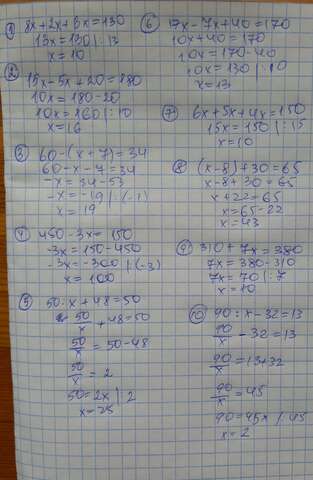 ① 8x+2x+3x=130
13x=130 |:13
x=10
② 15x-5x+20=180
10x=180-20
10x=160 |:10
x=16
③ 60-(x+7)=34
60-x-7=34
-x=34-53
-x=-19 |·(-1)
x=19
④ 450-3x=150
-3x=150-450
-3x=-300 |:(-3)
x=100
⑤ 50:x+48=50
50/x +48=50
50/x =50-48
50/x =2
50=2x |:2
x=25
⑥ 17x-7x+40=170
10x+40=170
10x=170-40
10x=130 |:10
x=13
⑦ 6x+5x+4x=150
15x=150 |:15
x=10
⑧ (x-8)+30=65
x-8+30=65
x+22=65
x=65-22
x=43
⑨ 310+7x=380
7x=380-310
7x=70 |:7
x=10
⑩ 90:x-32=13
90/x -32=13
90/x =13+32
90/x =45
90=45x |:45
x=2